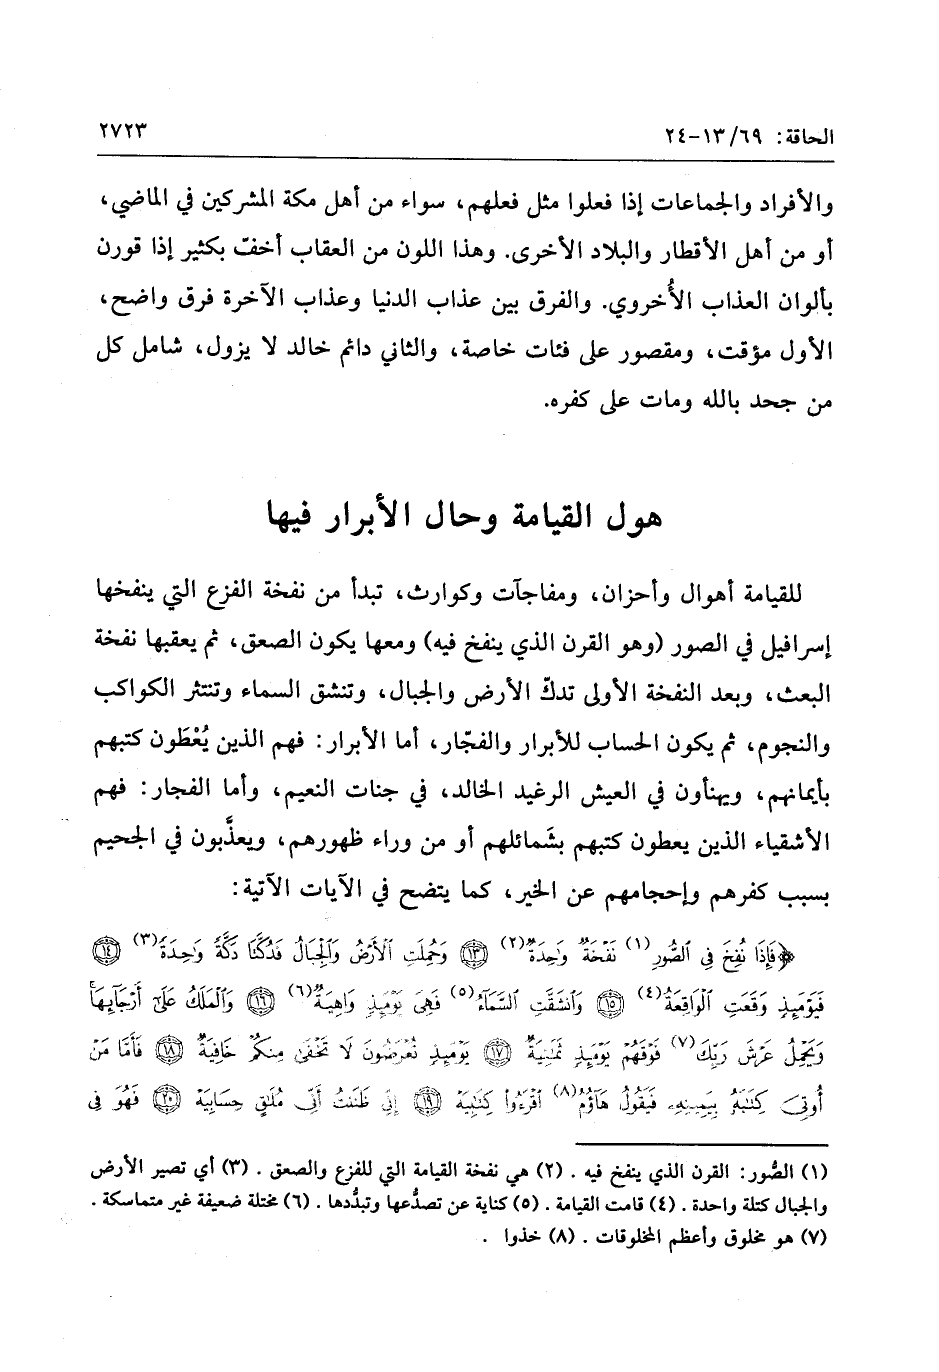 الحاقة: ٦٩/ ١٣-٢٤ ٢٧٢٣
والأفراد والجماعات إذا فعلوا مثل فعلهم، سواء من أهل مكة المشركين في الماضي،
أو من أهل الأقطار والبلاد الأخرى. وهذا اللون من العقاب أخفّ بكثير إذا قورن
بألوان العذاب الأُخروي. والفرق بين عذاب الدنيا وعذاب الآخرة فرق واضح،
الأول مؤقت، ومقصور على فئات خاصة، والثاني دائم خالد لا يزول، شامل كل
من جحد بالله ومات على كفره.
هول القيامة وحال الأبرار فيها
للقيامة أهوال وأحزان، ومفاجآت وكوارث، تبدأ من نفخة الفزع التي ينفخها
إسرافيل في الصور (وهو القرن الذي ينفخ فيه) ومعها يكون الصعق، ثم يعقبها نفخة
البعث، وبعد النفخة الأولى تدكّ الأرض والجبال، وتنشق السماء وتنتثر الكواكب
والنجوم، ثم يكون الحساب للأبرار والفجّار، أما الأبرار: فهم الذين يُعْطَون كتبهم
بأيمانهم، ويهنأون في العيش الرغيد الخالد، في جنات النعيم، وأما الفجار: فهم
الأشقياء الذين يعطون كتبهم بشَمائلهم أو من وراء ظهورهم، ويعذَّبون في الجحيم
بسبب كفرهم وإحجامهم عن الخير، كما يتضح في الآيات الآتية:
﴿فَإِذَا نُفِخَ فِي ٱلصُّورِ(١) نَفْخَةٌ وَٰحِدَةٌ(٢) ﴿١٣﴾ وَحُمِلَتِ ٱلْأَرْضُ وَٱلْجِبَالُ فَدُكَّتَا دَكَّةً وَٰحِدَةً(٣) ﴿١٤﴾
فَيَوْمَئِذٍ وَقَعَتِ ٱلْوَاقِعَةُ(٤) ﴿١٥﴾ وَٱنشَقَّتِ ٱلسَّمَآءُ(٥) فَهِىَ يَوْمَئِذٍ وَاهِيَةٌ(٦) ﴿١٦﴾ وَٱلْمَلَكُ عَلَىٰٓ أَرْجَآئِهَا
وَيَحْمِلُ عَرْشَ رَبِّكَ(٧) فَوْقَهُمْ يَوْمَئِذٍ ثَمَٰنِيَةٌ ﴿١٧﴾ يَوْمَئِذٍ تُعْرَضُونَ لَا تَخْفَىٰ مِنكُمْ خَافِيَةٌ ﴿١٨﴾ فَأَمَّا مَنْ
أُوتِىَ كِتَٰبَهُۥ بِيَمِينِهِۦ فَيَقُولُ هَآؤُمُ(٨) ٱقْرَءُوا۟ كِتَٰبِيَهْ ﴿١٩﴾ إِنِّى ظَنَنتُ أَنِّى مُلَٰقٍ حِسَابِيَهْ ﴿٢٠﴾ فَهُوَ فِى
(١) الصُّور: القرن الذي ينفخ فيه . (٢) هي نفخة القيامة التي للفزع والصعق . (٣) أي تصير الأرض
والجبال كتلة واحدة . (٤) قامت القيامة . (٥) كناية عن تصدُّعها وتبدُّدها . (٦) مختلة ضعيفة غير متماسكة .
(٧) هو مخلوق وأعظم المخلوقات . (٨) خذوا .